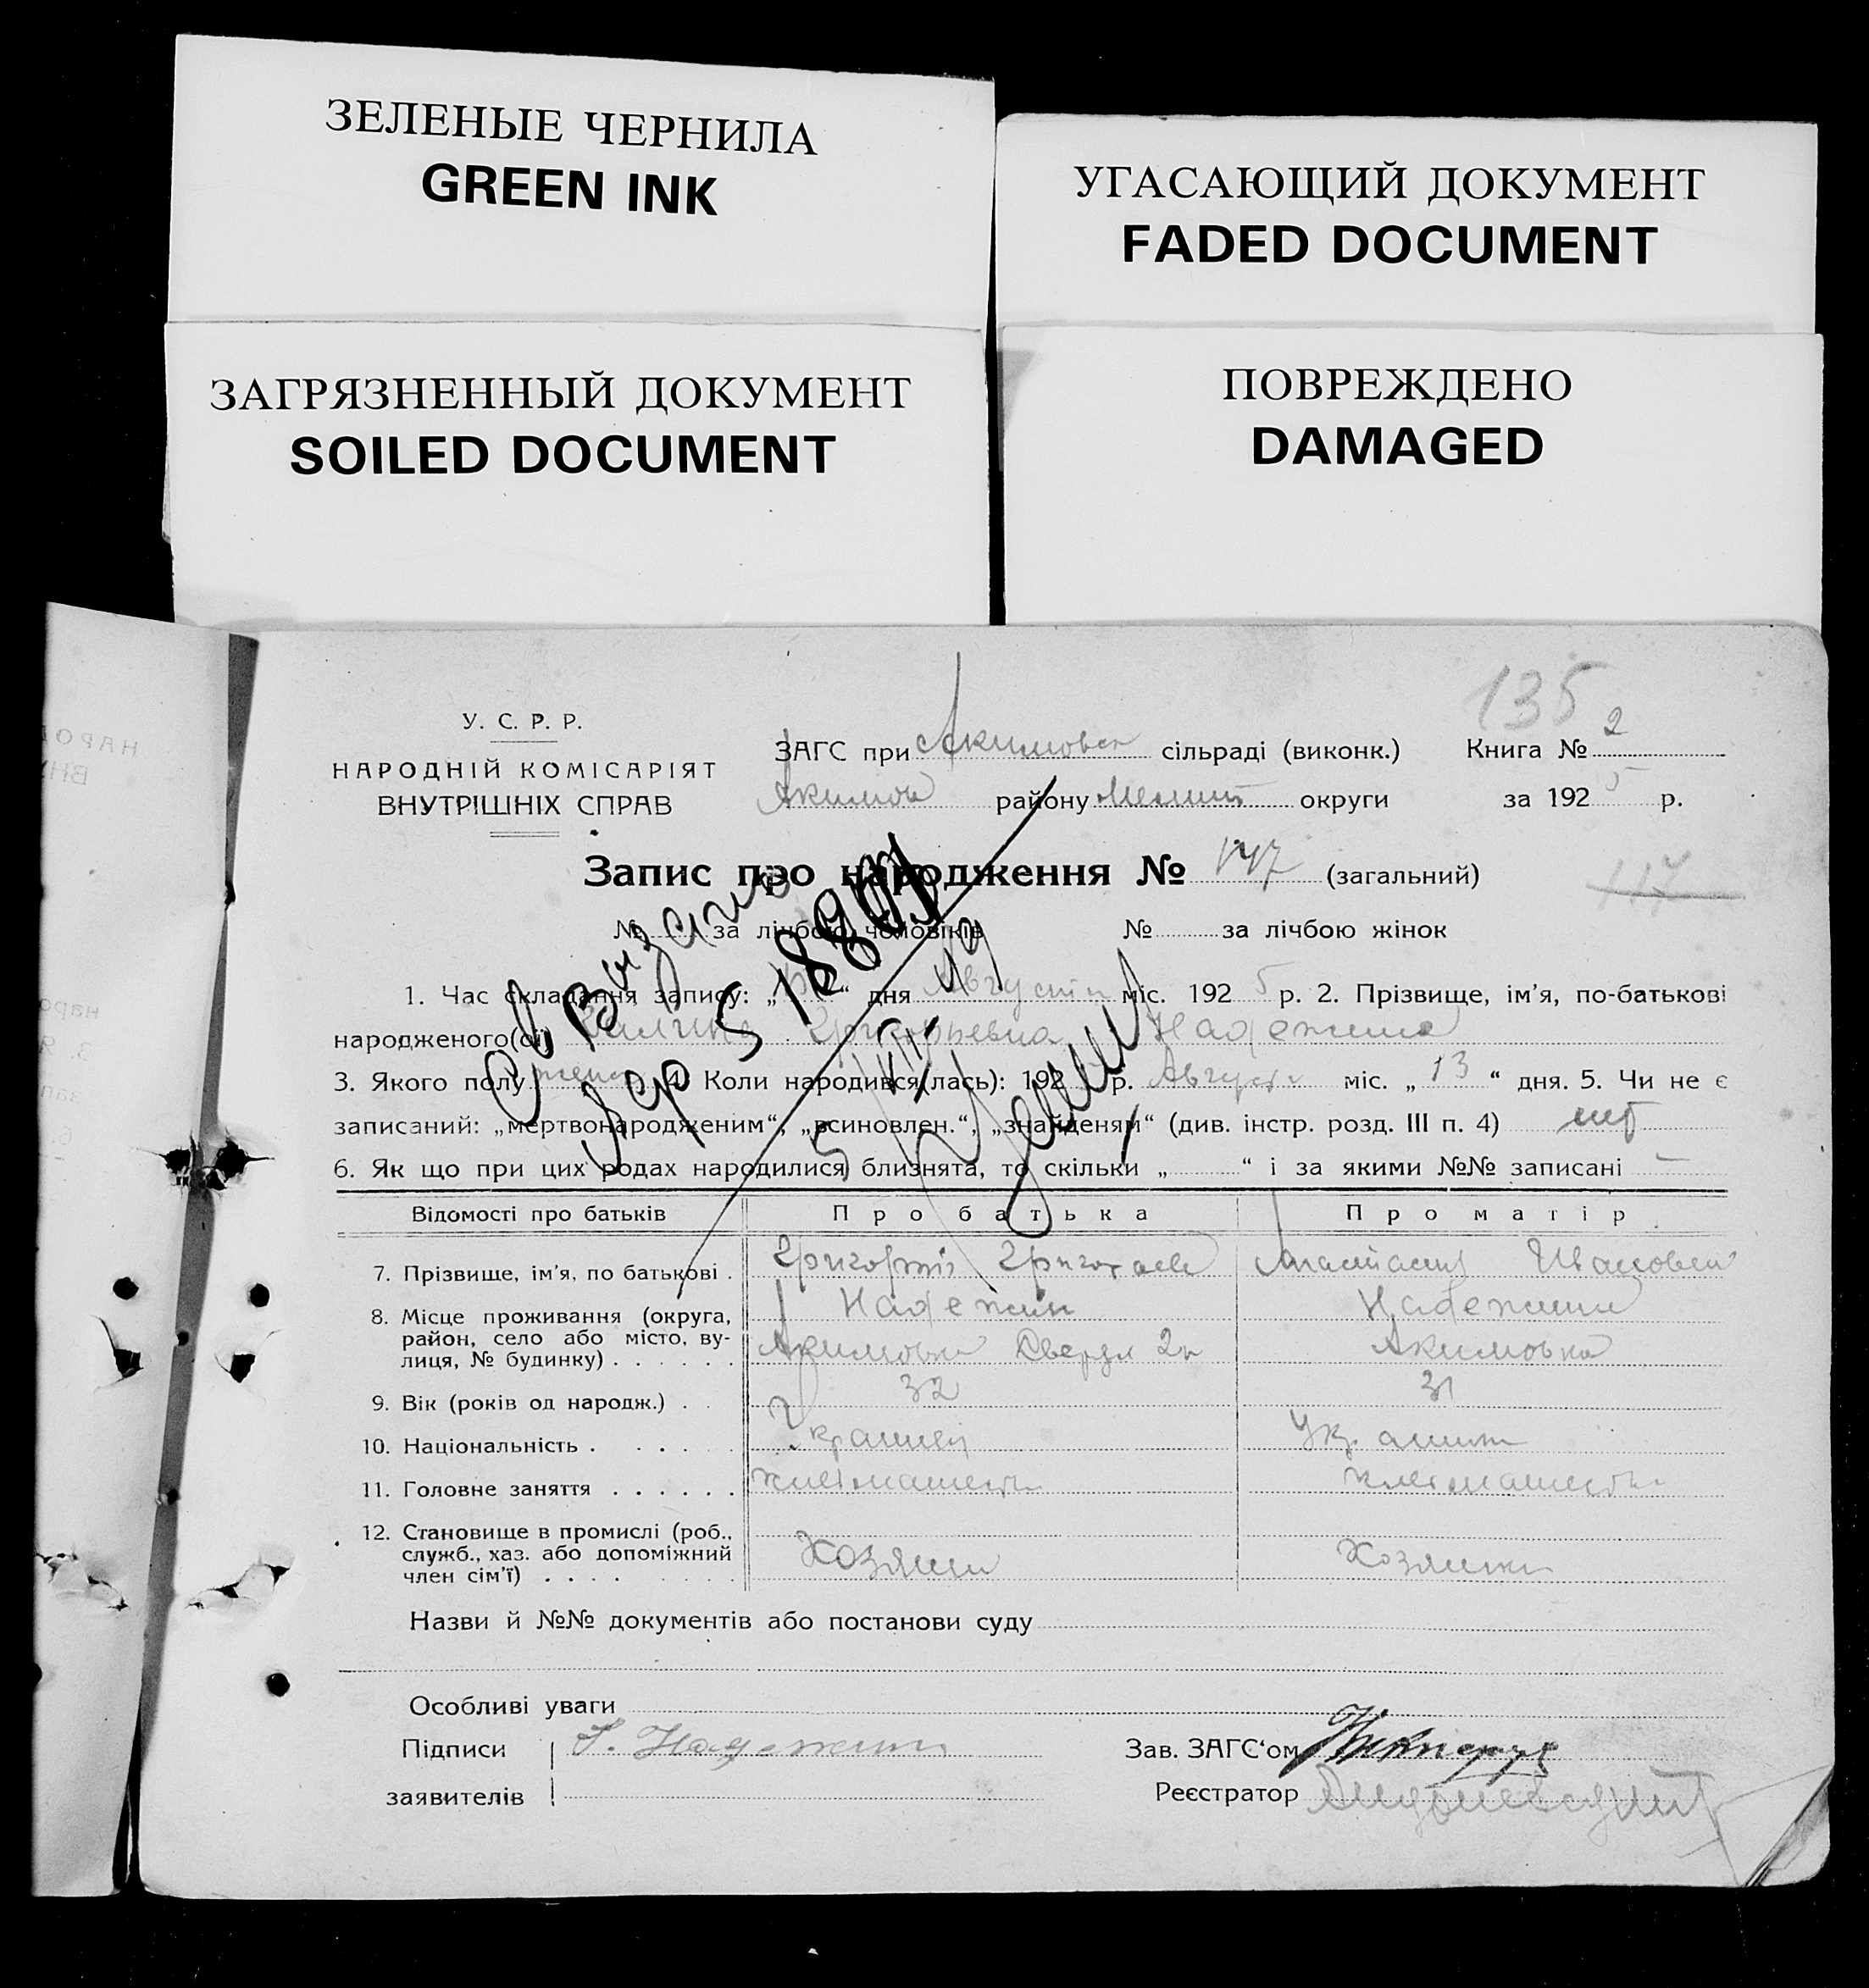 ЗЕЛЕНЫЕ ЧЕРНИЛА
GREEN INK
УГАСАЮЩИЙ ДОКУМЕНТ
FADED DOCUMENT
ЗАГРЯЗНЕННЫЙ ДОКУМЕНТ
SOILED DOCUMENT
ПОВРЕЖДЕНО
DAMAGED
135
У. С. Р. Р.
НАРОДНІЙ КОМІСАРІЯТ
ВНУТРІШНІХ СПРАВ
ЗАГС при Акимовск сільраді (виконк.) Книга № 2
Акимов району Мелит округи за 1925 р.
Запис про народження № 147 (загальний)
117
№ за лічбою чоловіків № за лічбою жінок
1. Час складання запису: „ “ дня Августа міс. 1925 р. 2. Прізвище, ім'я, по-батькові
народженого(ої) Григорьевна Надежина
3. Якого полу женск 4. Коли народився(лась): 192 р. Август міс. „13“ дня. 5. Чи не є
записаний: „мертвонародженим“, „всиновлен.“, „знайденям“ (див. інстр. розд. III п. 4) нет
6. Як що при цих родах народилися близнята, то скільки „ “ і за якими №№ записані —
Відомості про батьків Про батька Про матір
7. Прізвище, ім'я, по батькові . Григорий Григорьев Анастасия Ивановна
Надежин Надежина
8. Місце проживання (округа,
район, село або місто, ву-
лиця, № будинку) . . . . . . Акимовка Свердл 2 Акимовка
9. Вік (років од народж.) . . 32 31
10. Національність . . . . . Украинец Укр.
11. Головне заняття . . . . . . хлебопашест хлебопашест
12. Становище в промислі (роб.,
служб., хаз. або допоміжний
член сім'ї) . . . . Хозяин Хозяйка
Назви й №№ документів або постанови суду
Особливі уваги
Підписи Надежин Зав. ЗАГС'ом
заявителів Реєстратор